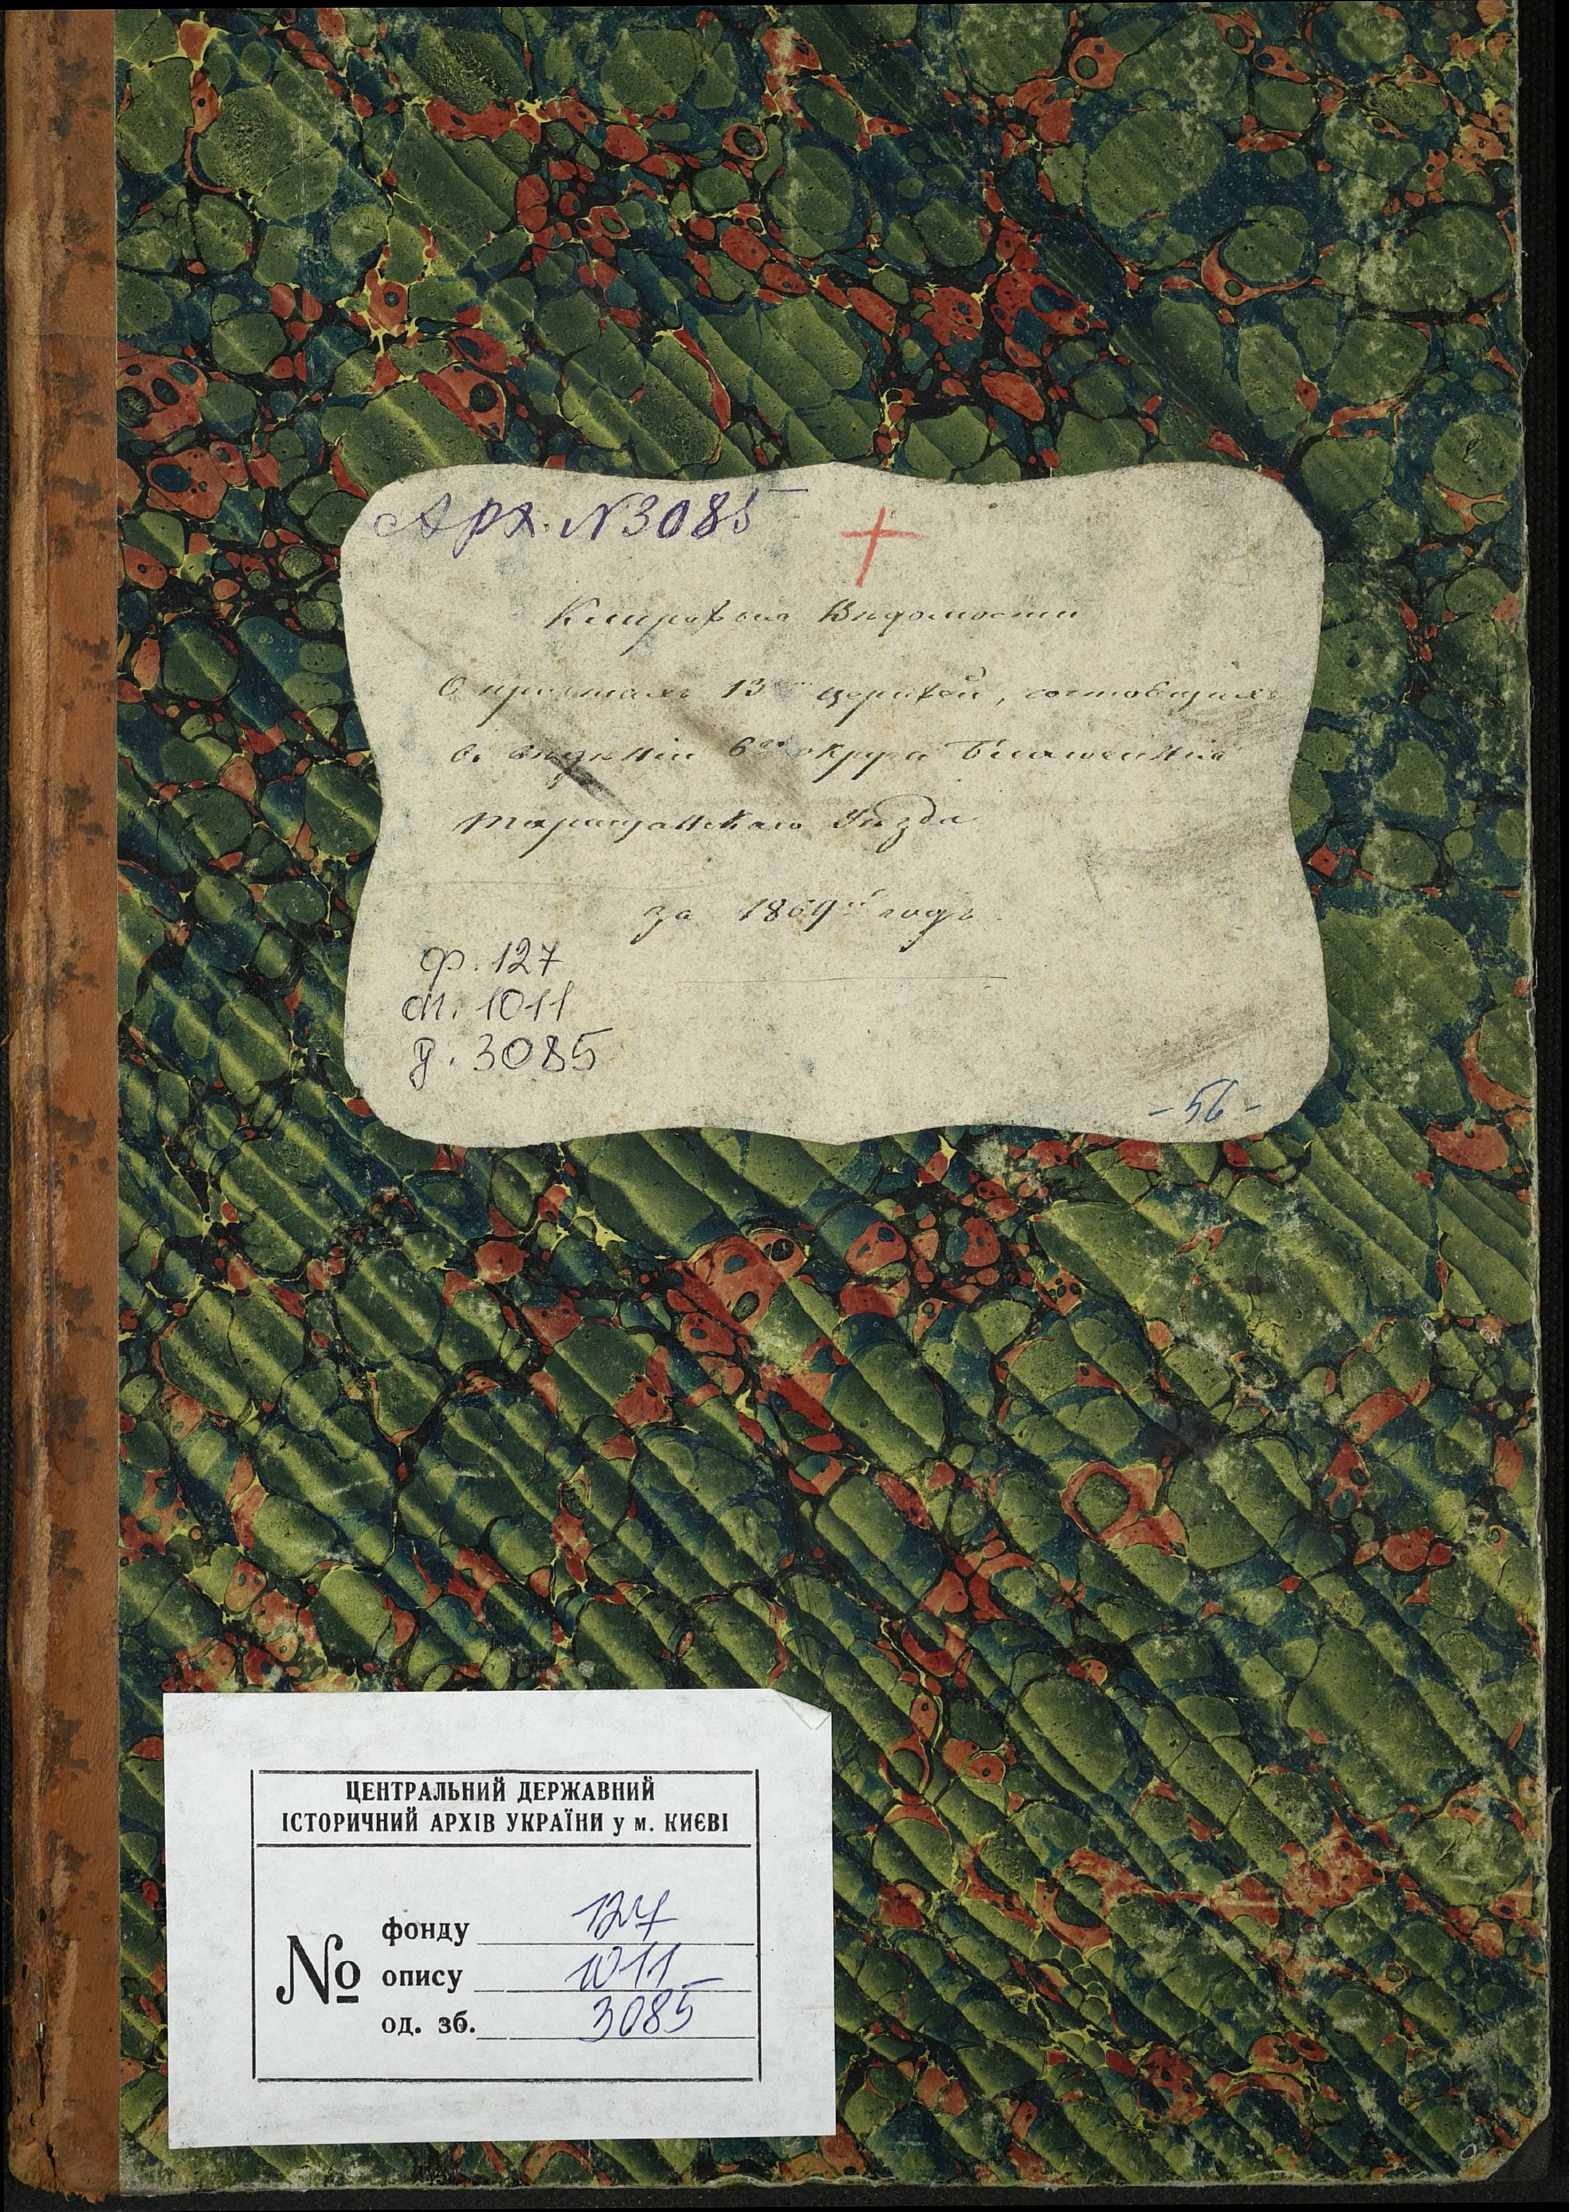 Арх. N 3085
Клировыя Вѣдомости
О причтахъ 13 церквей, состоящихъ
въ вѣдѣніи 6го округа Благочинія
Таращанскаго Уѣзда
за 1869й годъ
ф. 127
оп. 1011
д. 3085
- 56 -
ЦЕНТРАЛЬНИЙ ДЕРЖАВНИЙ
ІСТОРИЧНИЙ АРХІВ УКРАЇНИ у м. КИЄВІ
№
фонду 127
опису 1011
од. зб. 3085